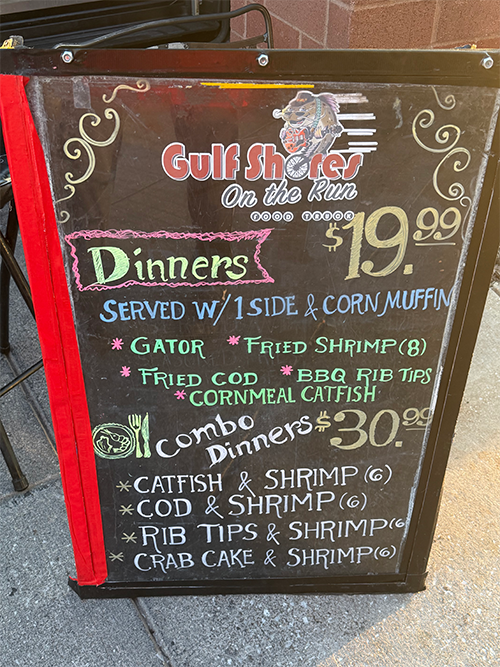 Gulf Shores
On the Run
FOOD TRUCK
Dinners $19.99
SERVED W/ 1 SIDE & CORN MUFFIN
* GATOR * FRIED SHRIMP (8)
* FRIED COD * BBQ RIB TIPS
* CORNMEAL CATFISH
Combo Dinners $30.99
* CATFISH & SHRIMP (6)
* COD & SHRIMP (6)
* RIB TIPS & SHRIMP (6
* CRAB CAKE & SHRIMP (6)